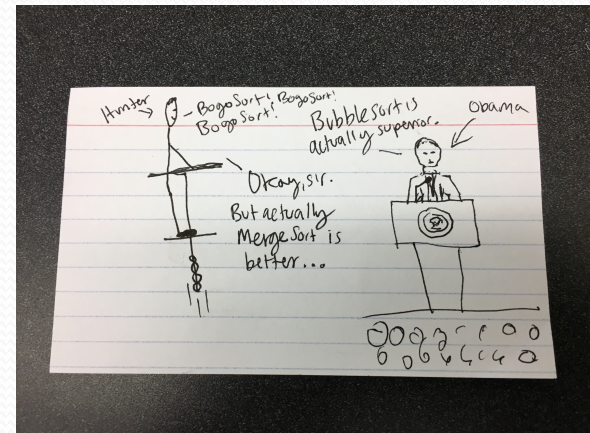 Hunter
BogoSort! BogoSort!
BogoSort!
Okay, sir.
But actually
MergeSort is
better...
Bubble Sort is
actually superior.
Obama